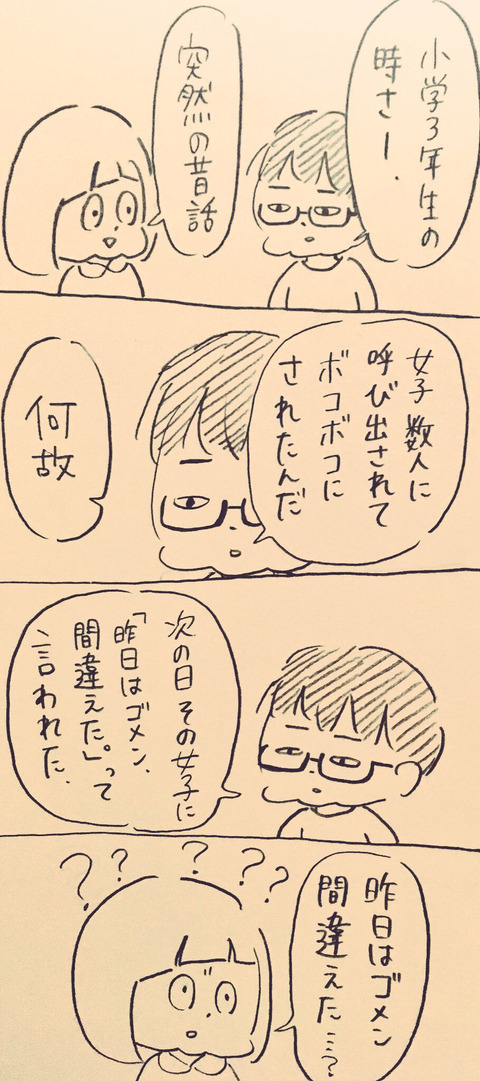 小学3年生の
時さー.
突然の昔話
女子数人に
呼び出されて
ボコボコに
されたんだ
何故
次の日その女子に
「昨日はゴメン、
間違えた。」って
言われた.
? ? ? ? ?
昨日はゴメン
間違えた…?